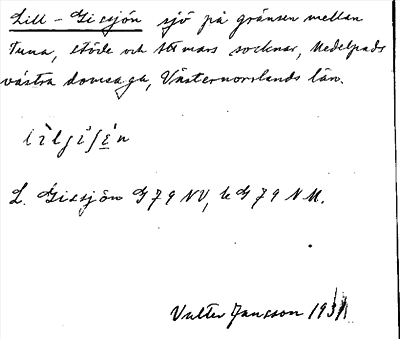 Lill-Gissjön sjö på gränsen mellan
Tuna, Stöde och Attmars socknar, Medelpads
västra domsaga, Västernorrlands län.
L. Gissjön G 79 NV, k G 79 NM.
Valter Jansson 193